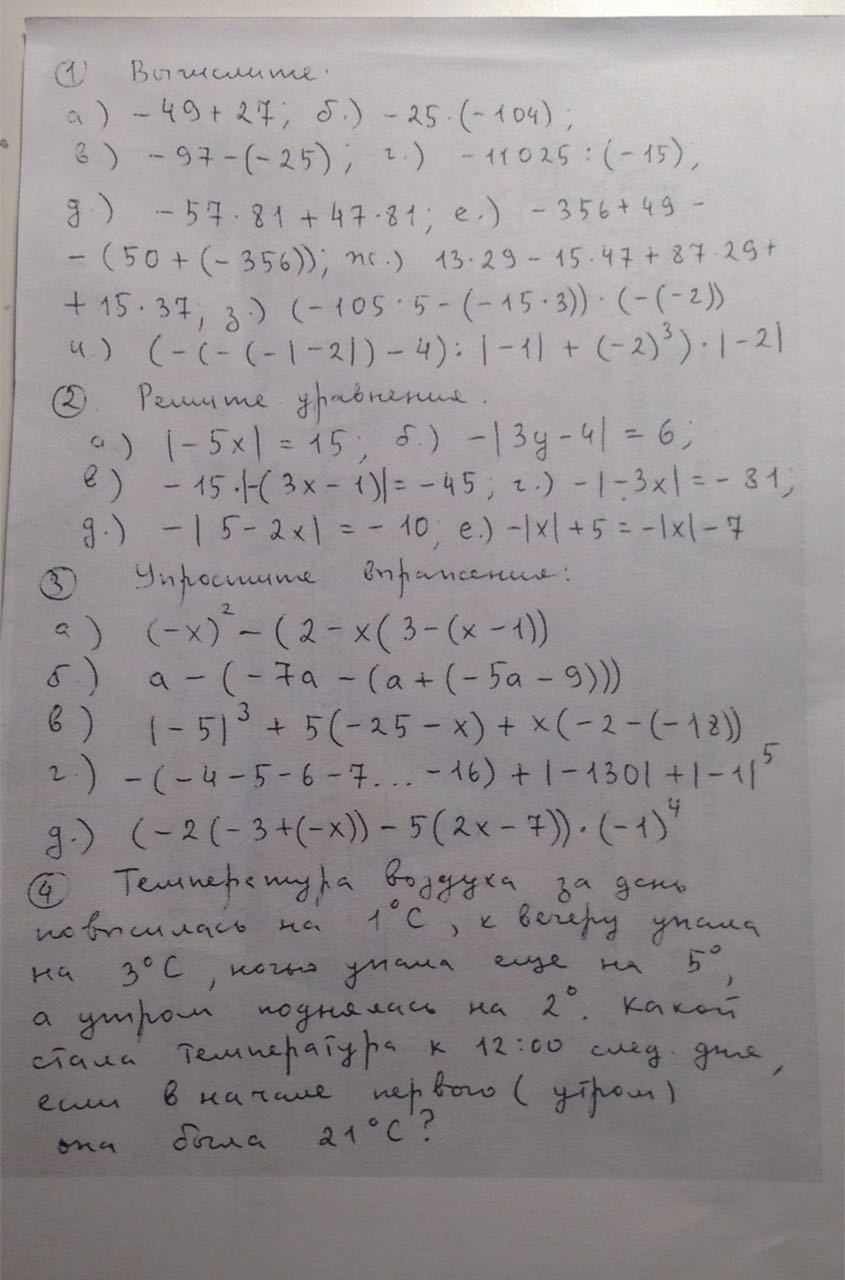 ① Вычислите:
а.) -49+27; б.) -25·(-104);
в.) -97-(-25); г.) -11025:(-15);
д.) -57·81+47·81; е.) -356+49-
-(50+(-356)); ж.) 13·29-15·47+87·29+
+15·37; з.) (-105·5-(-15·3))·(-(-2))
и.) (-(-(-|-2|)-4):|-1|+(-2)³)·|-2|
② Решите уравнения.
а.) |-5x|=15; б.) -|3y-4|=6;
в.) -15·|-(3x-1)|=-45; г.) -|-3x|=-81;
д.) -|5-2x|=-10; е.) -|x|+5=-|x|-7
③ Упростите выражения:
а.) (-x)²-(2-x(3-(x-1))
б.) a-(-7a-(a+(-5a-9)))
в.) |-5|³+5(-25-x)+x(-2-(-18))
г.) -(-4-5-6-7...-16)+|-130|+|-1|⁵
д.) (-2(-3+(-x))-5(2x-7))·(-1)⁴
④ Температура воздуха за день
повысилась на 1°C, к вечеру упала
на 3°C, ночью упала еще на 5°,
а утром поднялась на 2°. Какой
стала температура к 12:00 след. дня,
если в начале первого (утром)
она была 21°C?